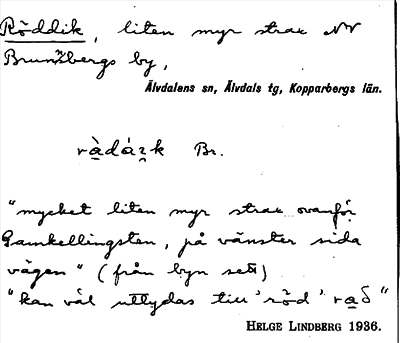 Röddik, liten myr strax NV
Brunnsbergs by,
Älvdalens sn, Älvdals tg, Kopparbergs län.
Br.
"mycket liten myr strax ovanför
Gamkellingsten, på vänster sida
vägen" (från byn sett)
"kan väl uttydas till 'röd'
HELGE LINDBERG 1936.